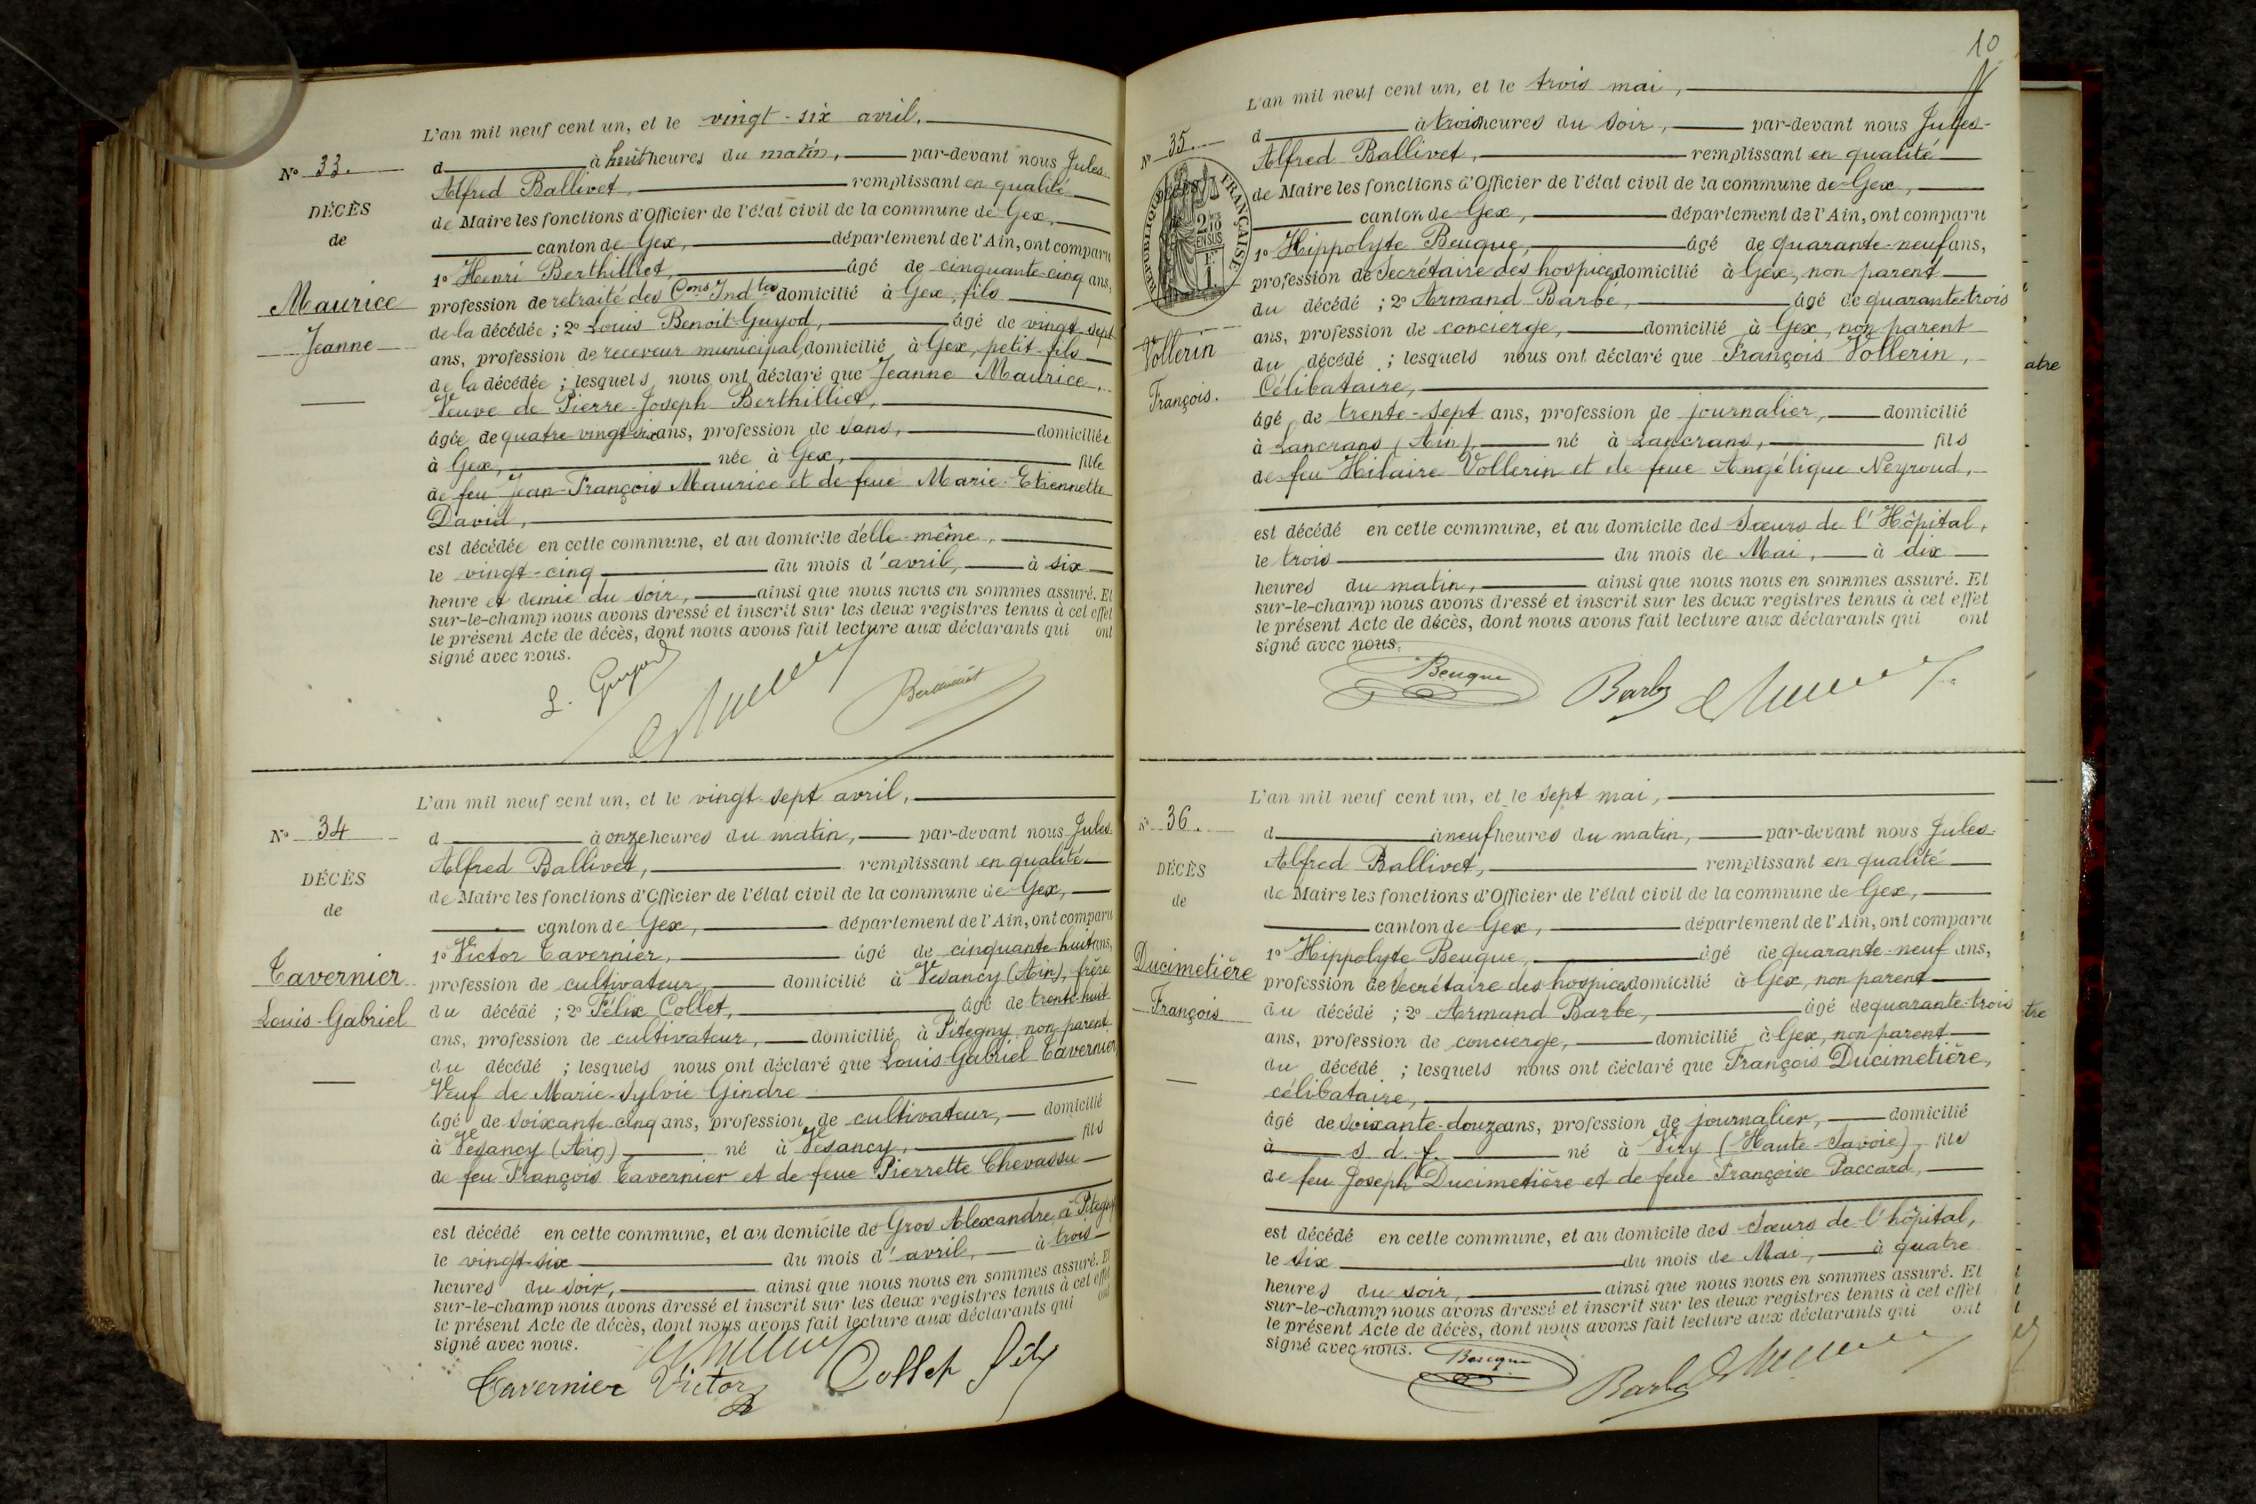 L'an mil neuf cent un, et le vingt-six avril,
No 33.
d à huit heures du matin, par-devant nous Jules-
Alfred Ballivet, remplissant en qualité
DÉCÈS
de Maire les fonctions d'Officier de l'état civil de la commune de Gex,
de
canton de Gex, département de l'Ain, ont comparu
1o Henri Berthilliet, âgé de cinquante-cinq ans,
Maurice
profession de retraité des Cons Indtes domicilié à Gex, fils
Jeanne
de la décédée ; 2o Louis Benoit-Guyod, âgé de vingt-sept
ans, profession de receveur municipal, domicilié à Gex, petit-fils
de la décédée ; lesquels nous ont déclaré que Jeanne Maurice,
Veuve de Pierre-Joseph Berthilliet,
âgée de quatre-vingt-six ans, profession de sans, domiciliée
à Gex, née à Gex, fille
de feu Jean-François Maurice et de feue Marie-Etiennette
David,
est décédée en cette commune, et au domicile d'elle-même,
le vingt-cinq du mois d'avril, à six
heure et demie du soir, ainsi que nous nous en sommes assuré. Et
sur-le-champ nous avons dressé et inscrit sur les deux registres tenus à cet effet
le présent Acte de décès, dont nous avons fait lecture aux déclarants qui ont
signé avec nous.
L. Guyod
Berthilliet
L'an mil neuf cent un, et le vingt-sept avril,
No 34
d à onze heures du matin, par-devant nous Jules-
Alfred Ballivet, remplissant en qualité
DÉCÈS
de Maire les fonctions d'Officier de l'état civil de la commune de Gex,
de
canton de Gex, département de l'Ain, ont comparu
1o Victor Tavernier, âgé de cinquante-huit ans,
Tavernier
profession de cultivateur, domicilié à Vesancy (Ain), frère
Louis-Gabriel
du décédé ; 2o Félix Collet, âgé de trente-huit
ans, profession de cultivateur, domicilié à Pitegny, non parent
du décédé ; lesquels nous ont déclaré que Louis-Gabriel Tavernier
Veuf de Marie-Sylvie Gindre
âgé de soixante-cinq ans, profession de cultivateur, domicilié
à Vesancy (Ain) né à Vesancy, fils
de feu François Tavernier et de feue Pierrette Chevassu
est décédé en cette commune, et au domicile de Gros Alexandre, à Pitegny
le vingt-six du mois d'avril, à trois
heures du soir, ainsi que nous nous en sommes assuré. Et
sur-le-champ nous avons dressé et inscrit sur les deux registres tenus à cet effet
le présent Acte de décès, dont nous avons fait lecture aux déclarants qui ont
signé avec nous.
Tavernier Victor Collet félix
10
L'an mil neuf cent un, et le trois mai,
No 35.
d à trois heures du soir, par-devant nous Jules-
Alfred Ballivet, remplissant en qualité
RÉPUBLIQUE FRANÇAISE
2/10 EN SUS
1F
de Maire les fonctions d'Officier de l'état civil de la commune de Gex,
canton de Gex, département de l'Ain, ont comparu
1o Hippolyte Beuque, âgé de quarante-neuf ans,
profession de Secrétaire des hospices domicilié à Gex, non parent
du décédé ; 2o Armand Barbé, âgé de quarante-trois
Vollerin
ans, profession de concierge, domicilié à Gex, non parent
du décédé ; lesquels nous ont déclaré que François Vollerin,
François.
Célibataire,
âgé de trente-sept ans, profession de journalier, domicilié
à Lancrans (Ain) né à Lancrans, fils
de feu Hilaire Vollerin et de feue Angélique Neyroud,
est décédé en cette commune, et au domicile des Sœurs de l'Hôpital,
le trois du mois de Mai, à dix
heures du matin, ainsi que nous nous en sommes assuré. Et
sur-le-champ nous avons dressé et inscrit sur les deux registres tenus à cet effet
le présent Acte de décès, dont nous avons fait lecture aux déclarants qui ont
signé avec nous.
Beuque Barbé
L'an mil neuf cent un, et le sept mai,
No 36.
d à neuf heures du matin, par-devant nous Jules-
Alfred Ballivet, remplissant en qualité
DÉCÈS
de Maire les fonctions d'Officier de l'état civil de la commune de Gex,
de
canton de Gex, département de l'Ain, ont comparu
1o Hippolyte Beuque, âgé de quarante-neuf ans,
Ducimetière
profession de Secrétaire des hospices domicilié à Gex, non parent
François
du décédé ; 2o Armand Barbé, âgé de quarante-trois
ans, profession de concierge, domicilié à Gex, non parent
du décédé ; lesquels nous ont déclaré que François Ducimetière,
célibataire,
âgé de soixante-douze ans, profession de journalier, domicilié
à s. d. f. né à Viry (Haute-Savoie), fils
de feu Joseph Ducimetière et de feue Françoise Paccard,
est décédé en cette commune, et au domicile des Sœurs de l'hôpital,
le six du mois de Mai, à quatre
heures du soir, ainsi que nous nous en sommes assuré. Et
sur-le-champ nous avons dressé et inscrit sur les deux registres tenus à cet effet
le présent Acte de décès, dont nous avons fait lecture aux déclarants qui ont
signé avec nous.
Beuque Barbé
atre
tre